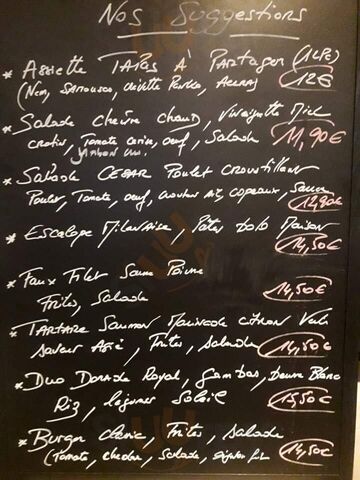 Nos Suggestions
* Assiette TAPAS À Partager (12Pc)
(Nem, Samoussa, Panko, 12€
* Salade chèvre chaud, Vinaigrette Miel
crotin, Tomate cerise, oeuf, Salade 11,90€
Jambon cru.
* SALADE CESAR Poulet Croustillant
Poulet, Tomate, oeuf, crouton ail, copeaux, sauce
12,90€
* Escalope Milanaise, Pâtes bolo Maison
14,50€
* Faux Filet Sauce Poivre
Frites, Salade 14,50€
* TARTARE Saumon Marinade citron Vert
saveur Asie, Frites, salade 14,50€
* Duo Dorade Royal, Gambas, Beurre Blanc
Riz, légumes Soleil 15,50€
* Burger classic, Frites, salade
(Tomate, cheddar, Salade, 14,50€